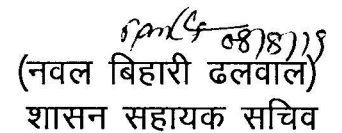 08/8/19
(नवल बिहारी ढलवाल)
शासन सहायक सचिव